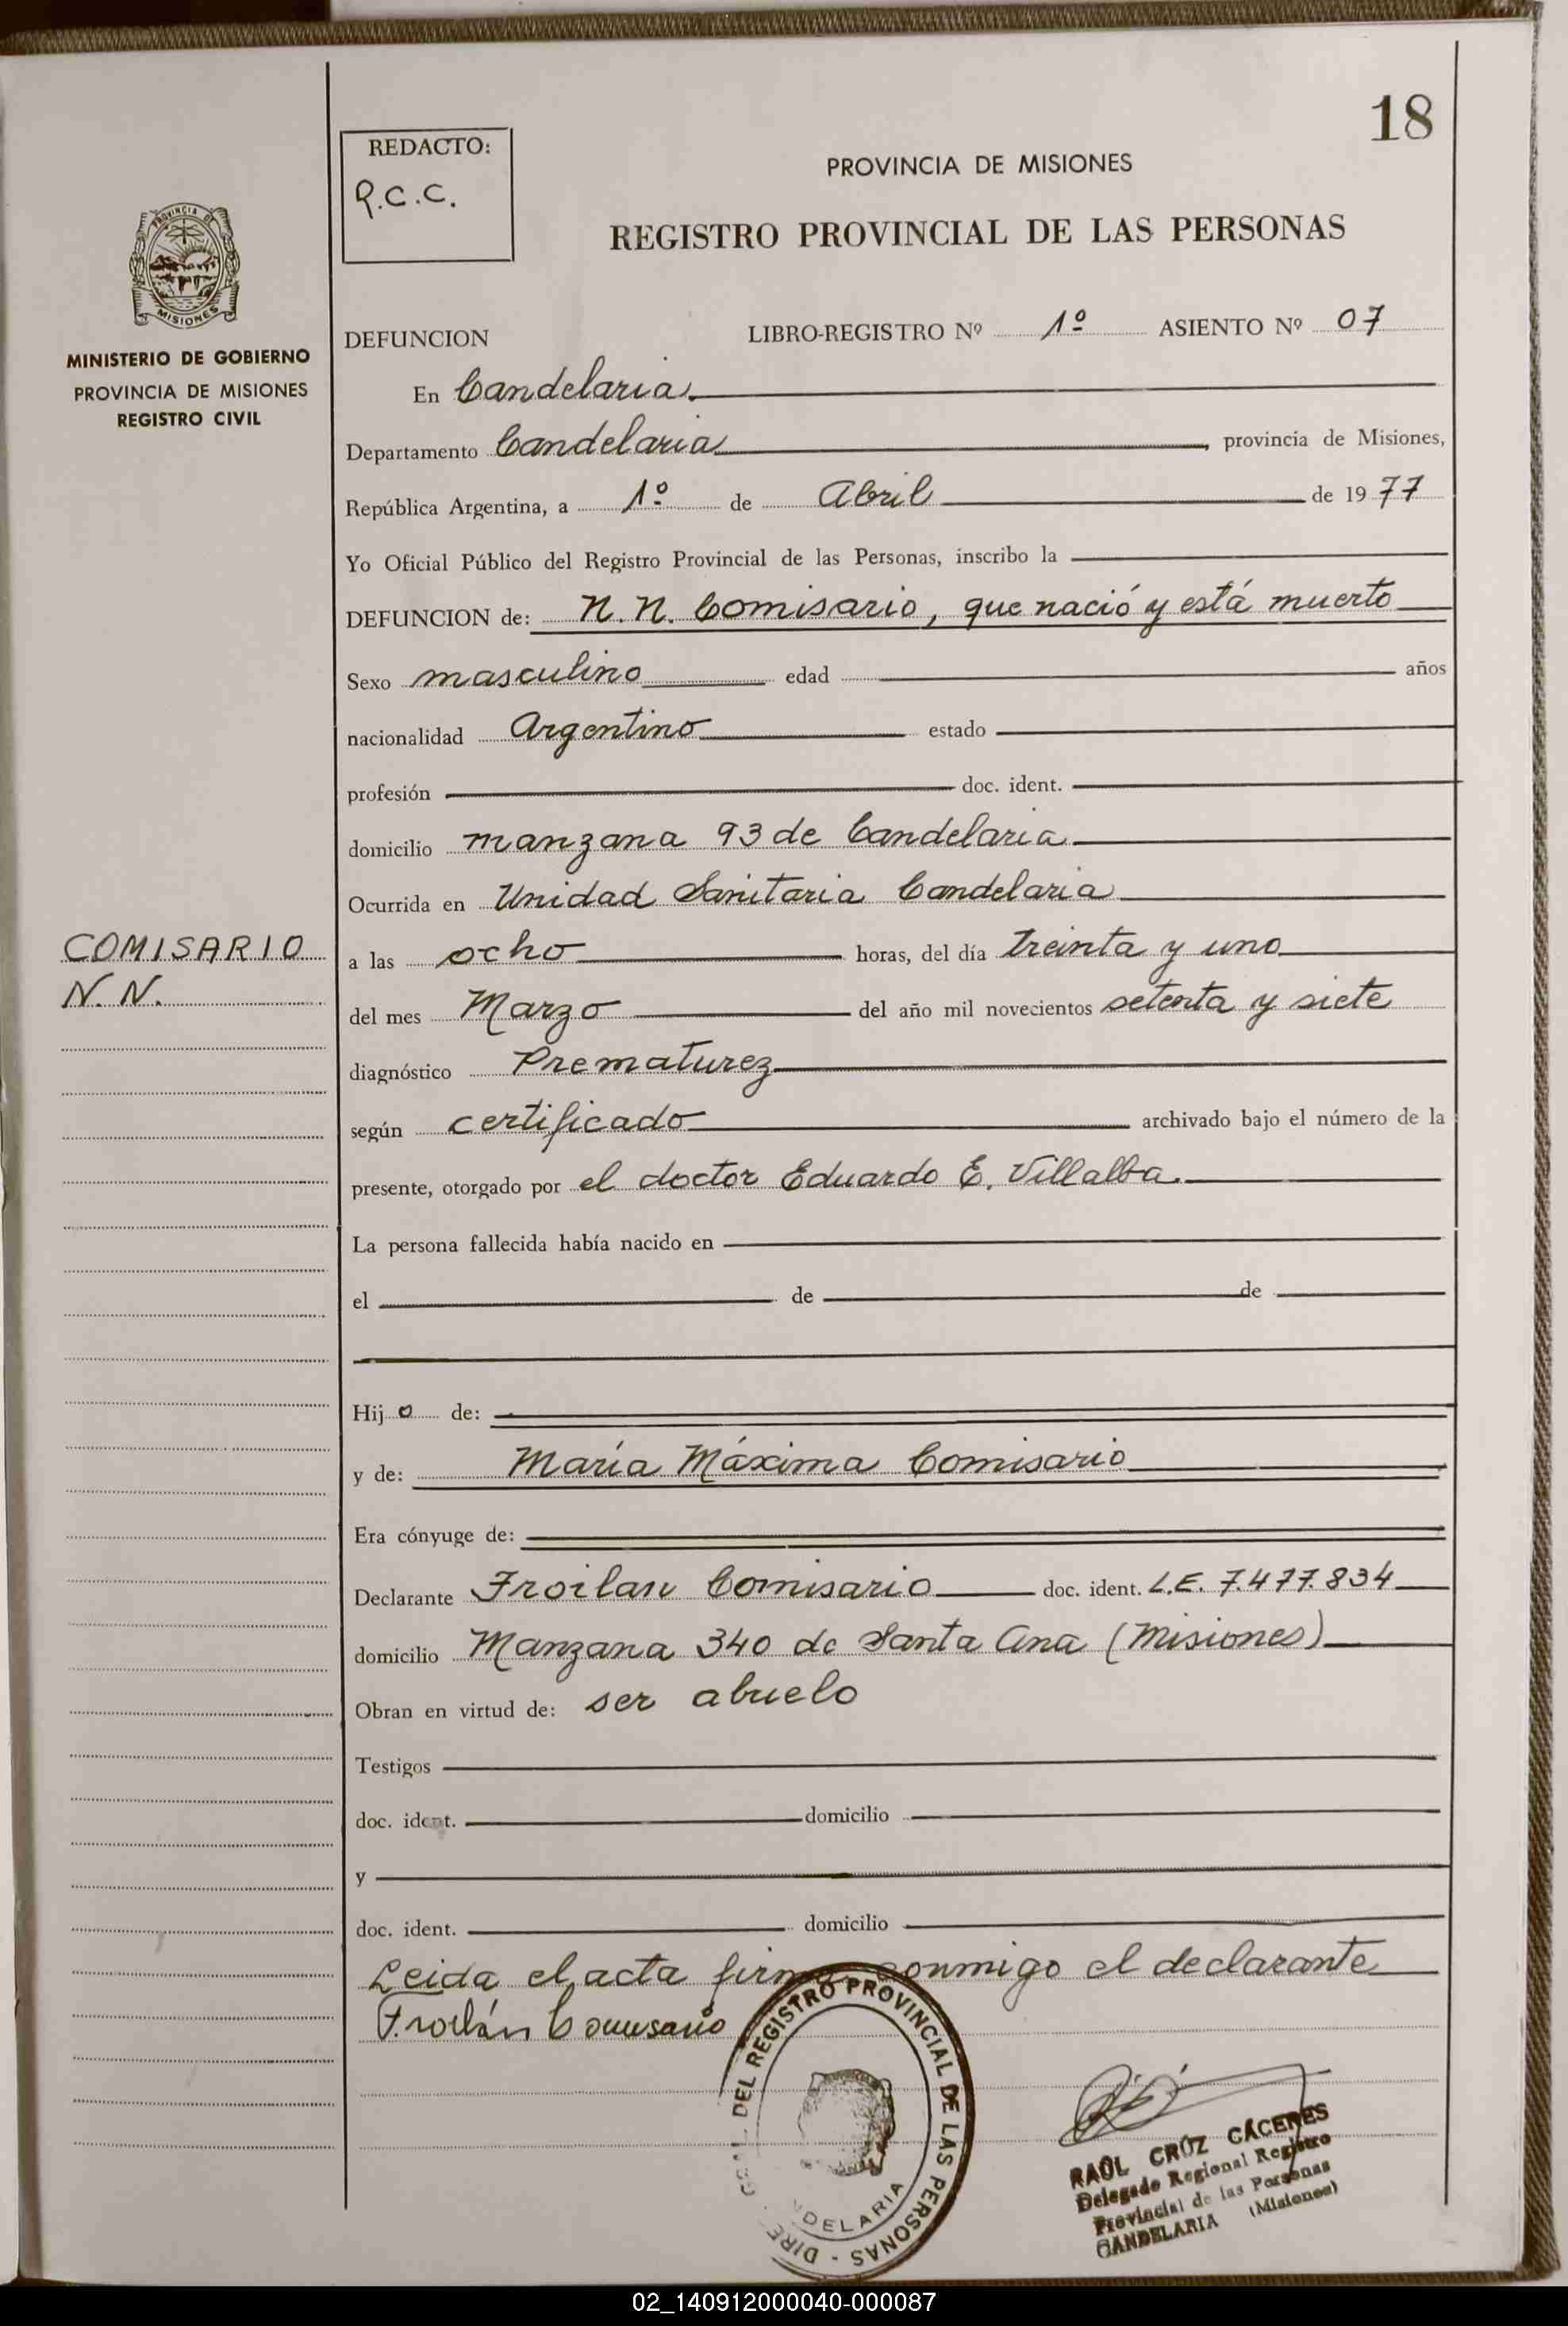 18
REDACTO:
R.C.C.
PROVINCIA DE MISIONES
REGISTRO PROVINCIAL DE LAS PERSONAS
PROVINCIA DE
MISIONES
MINISTERIO DE GOBIERNO
PROVINCIA DE MISIONES
REGISTRO CIVIL
DEFUNCION LIBRO-REGISTRO Nº 1º ASIENTO Nº 07
En Candelaria.
Departamento Candelaria, provincia de Misiones,
República Argentina, a 1º de Abril de 1977
Yo Oficial Público del Registro Provincial de las Personas, inscribo la
DEFUNCION de: N.N. Comisario, que nació y está muerto
Sexo masculino edad años
nacionalidad Argentino estado
profesión doc. ident.
domicilio manzana 93 de Candelaria
Ocurrida en Unidad Sanitaria Candelaria
COMISARIO
N.N.
a las ocho horas, del día treinta y uno
del mes Marzo del año mil novecientos setenta y siete
diagnóstico Prematurez
según certificado archivado bajo el número de la
presente, otorgado por el doctor Eduardo E. Villalba.
La persona fallecida había nacido en
el de de
Hijo de:
y de: María Máxima Comisario
Era cónyuge de:
Declarante Froilan Comisario doc. ident. L.E. 7.477.834
domicilio Manzana 340 de Santa Ana (Misiones)
Obran en virtud de: ser abuelo
Testigos
doc. ident. domicilio
y
doc. ident. domicilio
Leida el acta firma conmigo el declarante
Froilán Comisario
DEL REGISTRO PROVINCIAL DE LAS PERSONAS - DIRE
NDELARIA
RAÚL CRUZ CÁCERES
Delegado Regional Registro
Provincial de las Personas
CANDELARIA (Misiones)
02_140912000040-000087